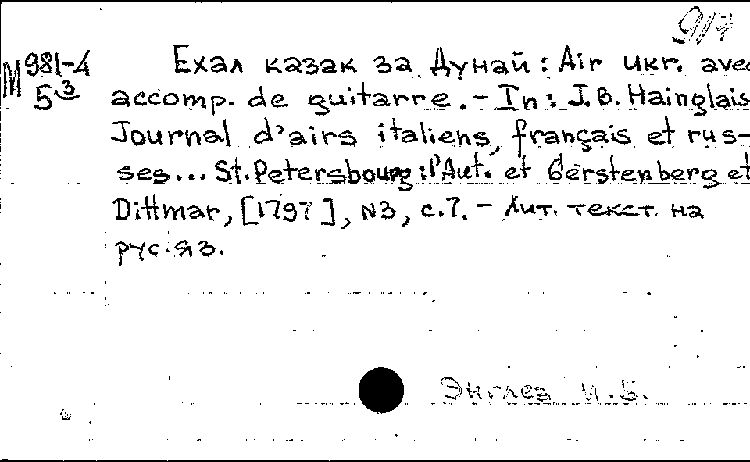 917
М 981-4
5 3
Ехал казак за Дунай: Air укr. avec
accomp. de guitarre. - In: J.B. Hainglais
Journal d'airs italiens, français et rus-
ses... St. Petersbourg: l'Aut. et Gerstenberg et
Dittmar, [1797], N3, с.7. - Лит. текст. на
рус. яз.
Энглез И.Б.